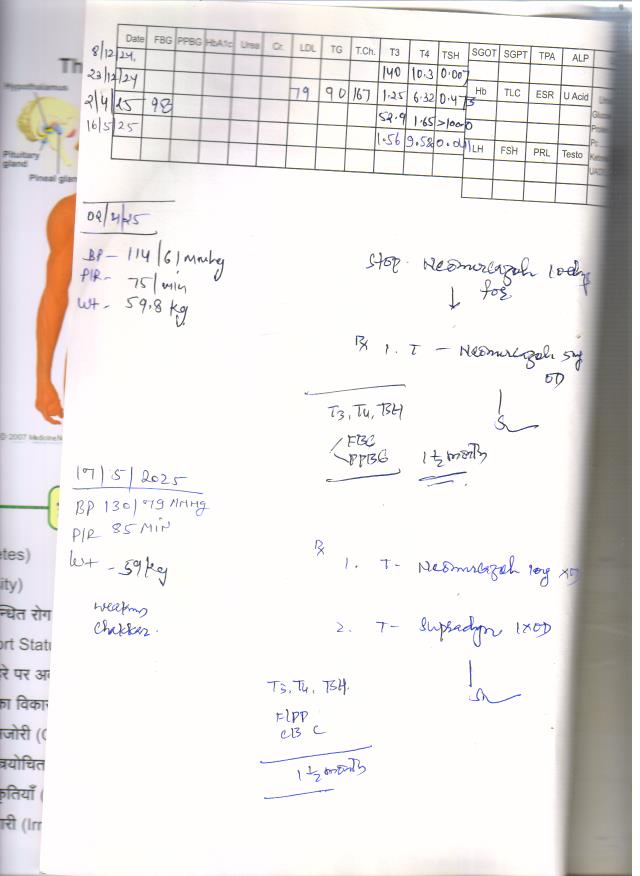 Date FBG PPBG HbA1c Urea Cr. LDL TG T.Ch. T3 T4 TSH SGOT SGPT TPA ALP
8/12/24
140 10.3 0.007
23/12/24
Hb TLC ESR U Acid
79 90 167 1.25 6.32 0.473
2/4/25 98
52.9 1.65 >100.0
16/5/25
1.56 9.58 0.041
LH FSH PRL Testo
Th
Hypothalamus
Pituitary
gland
Pineal glan
© 2007 MedicineN
02/4/25
BP - 114/61 mmhg
P/R - 75/min
Wt - 59.8 kg
Stop Neomercazole 10
for
Rx 1. T - Neomercazole 5mg
OD
T3, T4, TSH
FBG
PPBG
1 1/2 month
17/5/2025
BP 130/79 MMHg
P/R 85 MIN
Wt - 59 kg
weakness
chakkar.
Rx
1. T- Neomercazole 10mg XOD
2. T- Supradyn 1XOD
T3, T4, TSH.
F/PP
CBC
1 1/2 month
etes)
ity)
न्धित रोग
ort Stat
रे पर अ
का विका
जोरी (C
त्रयोचित
कृतियाँ (
ारी (Im